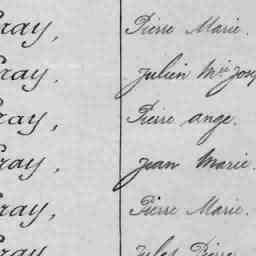 ray, Pierre Marie.
ray. Julien Mie Josep
ray, Pierre ange.
ray, Jean Marie.
ray, Pierre Marie.
ray Jules Pierre